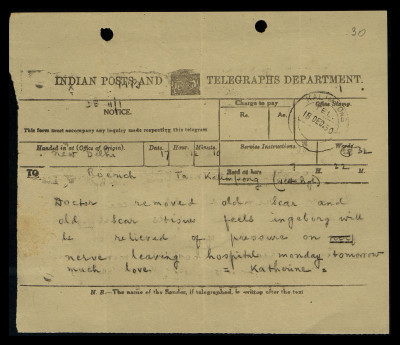 30
INDIAN POSTS AND TELEGRAPHS DEPARTMENT.
NOTICE.
Charge to pay
Office Stamp.
Rs. As.
This form must accompany any inquiry made respecting this telegram
15 DEC 50
Handed in at (Office of Origin). Date. Hour. Minute. Service Instructions. Words.
New Delhi 17 16 10 32
TO Roerich Recd. here at H. M.
Doctor removed old scar and
old scar tissue feels ingaborg will
be relieved of pressure on
nerve leaving hospital monday tomorrow
much love = Katherine =
N. B.—The name of the Sender, if telegraphed, is written after the text